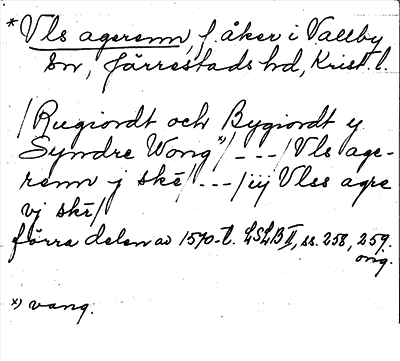 *Vls agerenn, f. åker i Vallby
sn, Järrestads hd, Krist. l.
/Rugiordt och Bygiordt y
Syndre Wong*)/---/Vls age-
renn j skē/---/iij Vlss agre
vj skē/
förra delen av 1570-t. LSLB II, ss. 258, 259.
orig.
*) vang.